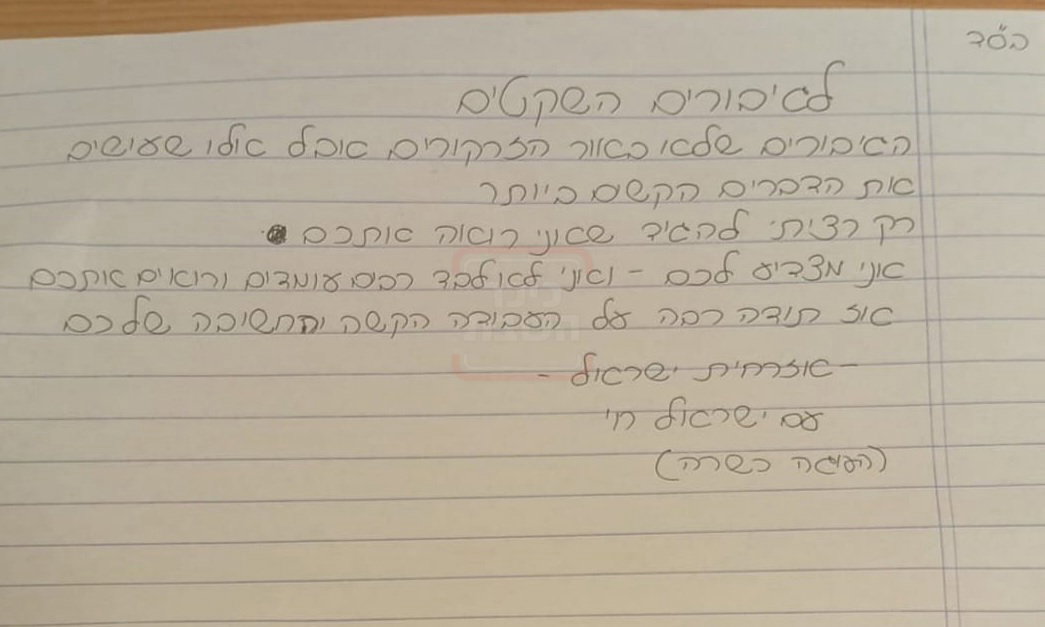 בס"ד
לגיבורים השקטים
הגיבורים שלאו באור הזרקורים אבל אלו שעושים
את הדברים הקשים ביותר
רק רציתי להגיד שאני רואה אתכם
אני מצדיע לכם - ואני לא לבד רבים עומדים ורואים אתכם
אז תודה רבה על העבודה הקשה והחשובה שלכם
- אזרחית ישראל -
עם ישראל חי
(העוגה כשרה)